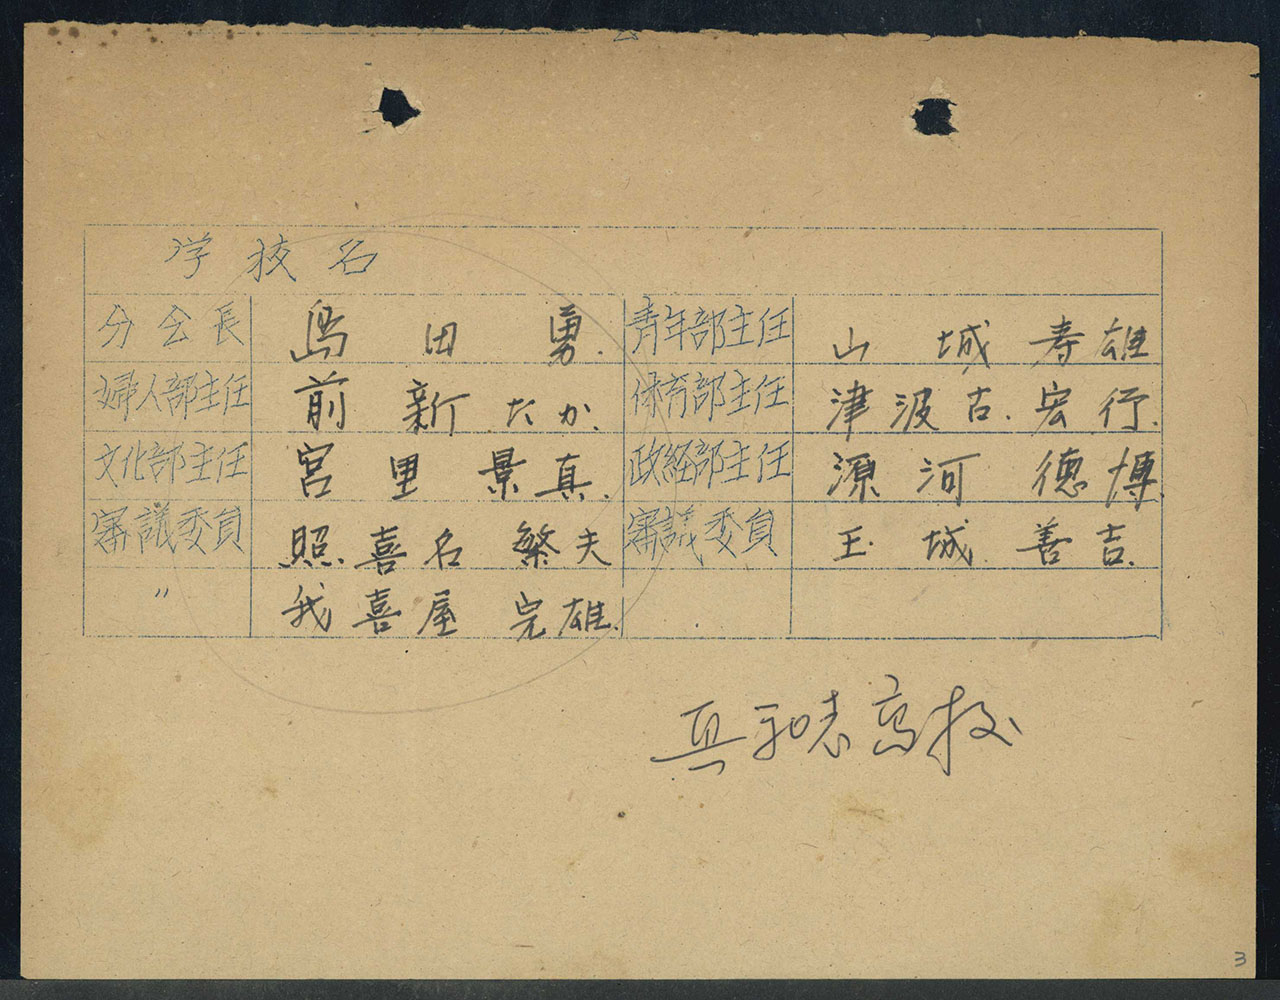 学校名
分会長 島田 勇. 青年部主任 山城 寿雄
婦人部主任 前新 たか. 体育部主任 津波古. 宏行.
文化部主任 宮里 景真. 政経部主任 源河 徳博.
審議委員 照喜名 繁夫 審議委員 玉城. 善吉.
〃 我喜屋 完雄.
真和志高校
3